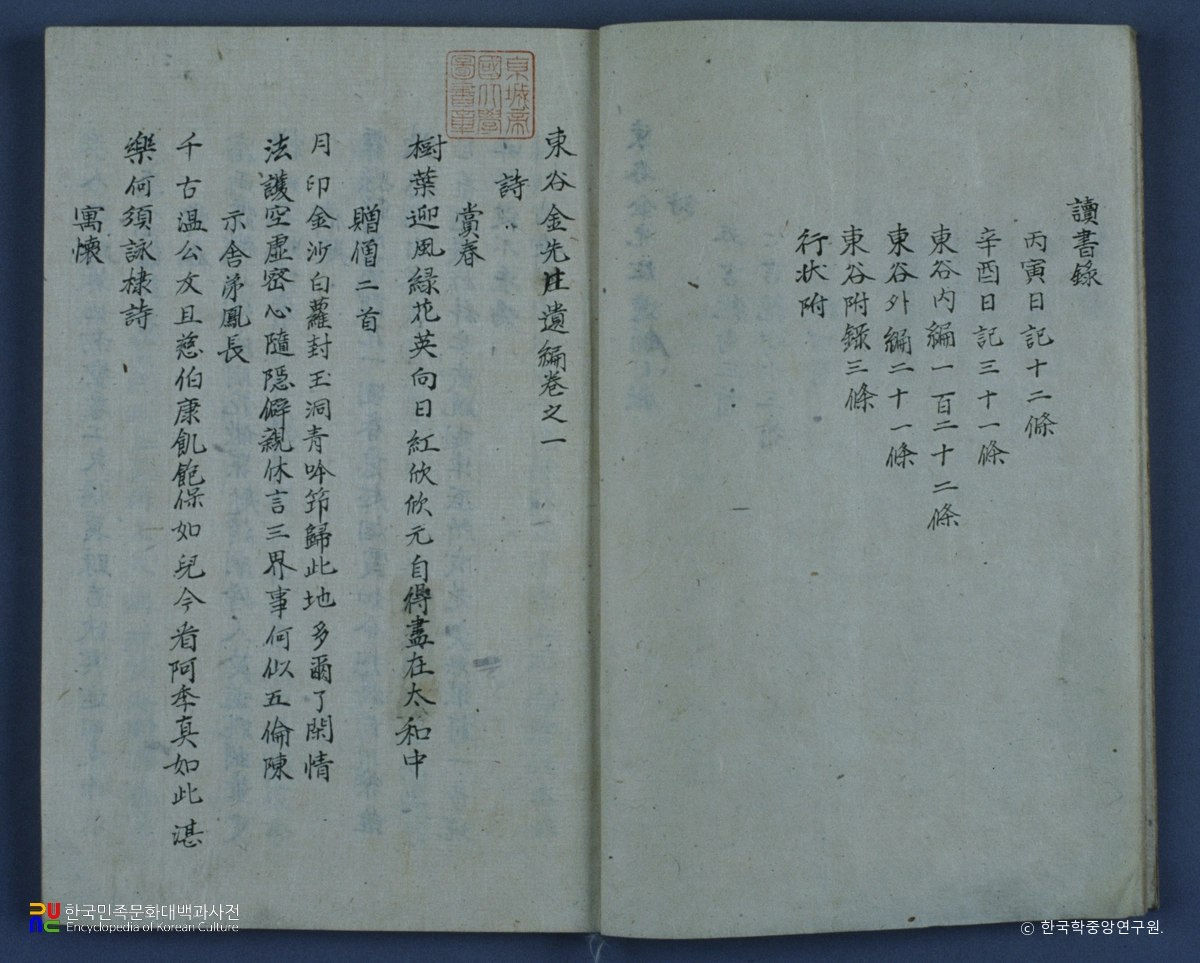 讀書錄
丙寅日記十二條
辛酉日記三十一條
東谷内編一百二十二條
東谷外編二十一條
東谷附錄三條
行状附
東谷金先生遺編卷之一
詩
賞春
樹葉迎風緑花英向日紅欣欣元自得盡在太和中
贈僧二首
月印金沙白蘿封玉洞青吟筇歸此地多爾了閑情
法護空虛密心隨隱僻親休言三界事何似五倫陳
示舍弟鳳長
千古温公友且慈伯康飢飽保如兒今看阿季真如此湛
樂何須詠棣詩
寓懷
京城帝
國大學
圖書章
한국민족문화대백과사전
Encyclopedia of Korean Culture
ⓒ 한국학중앙연구원.